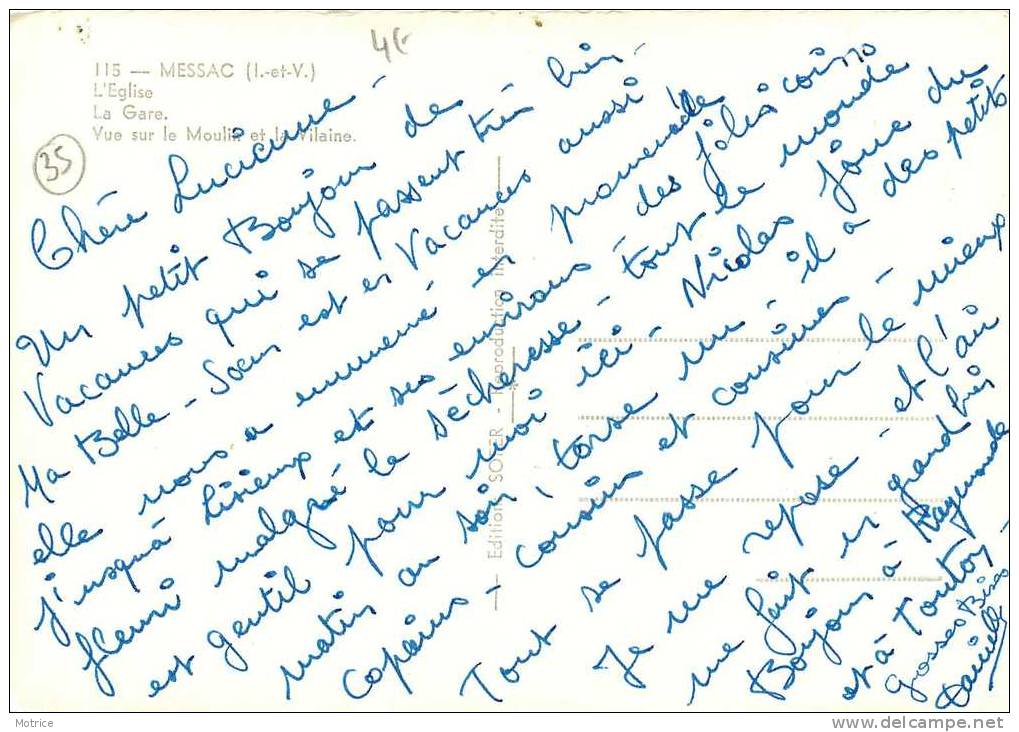 115 — MESSAC (I.-et-V.)
L'Eglise
La Gare.
Vue sur le Moulin et la Vilaine.
4€
35
Edition SOFER - Reproduction interdite
Chère Lucienne -
Un petit Bonjour de
Vacances qui se passent très bien -
Ma Belle-Soeur est en Vacances aussi
elle nous a emmené en promenade
jusqu'à Lisieux et ses environs des jolis coins
fleuri malgré la sècheresse - tout le monde
est gentil pour moi ici - Nicolas joue du
matin au soir torse nu il a des petits
copains - cousins et cousines -
Tout se passe pour le mieux
Je me repose - et l'air
me fait un grand bien
Bonjour à Raymonde
et à Tonton -
grosses Bises
Danielle
Motrice
delcampe.net